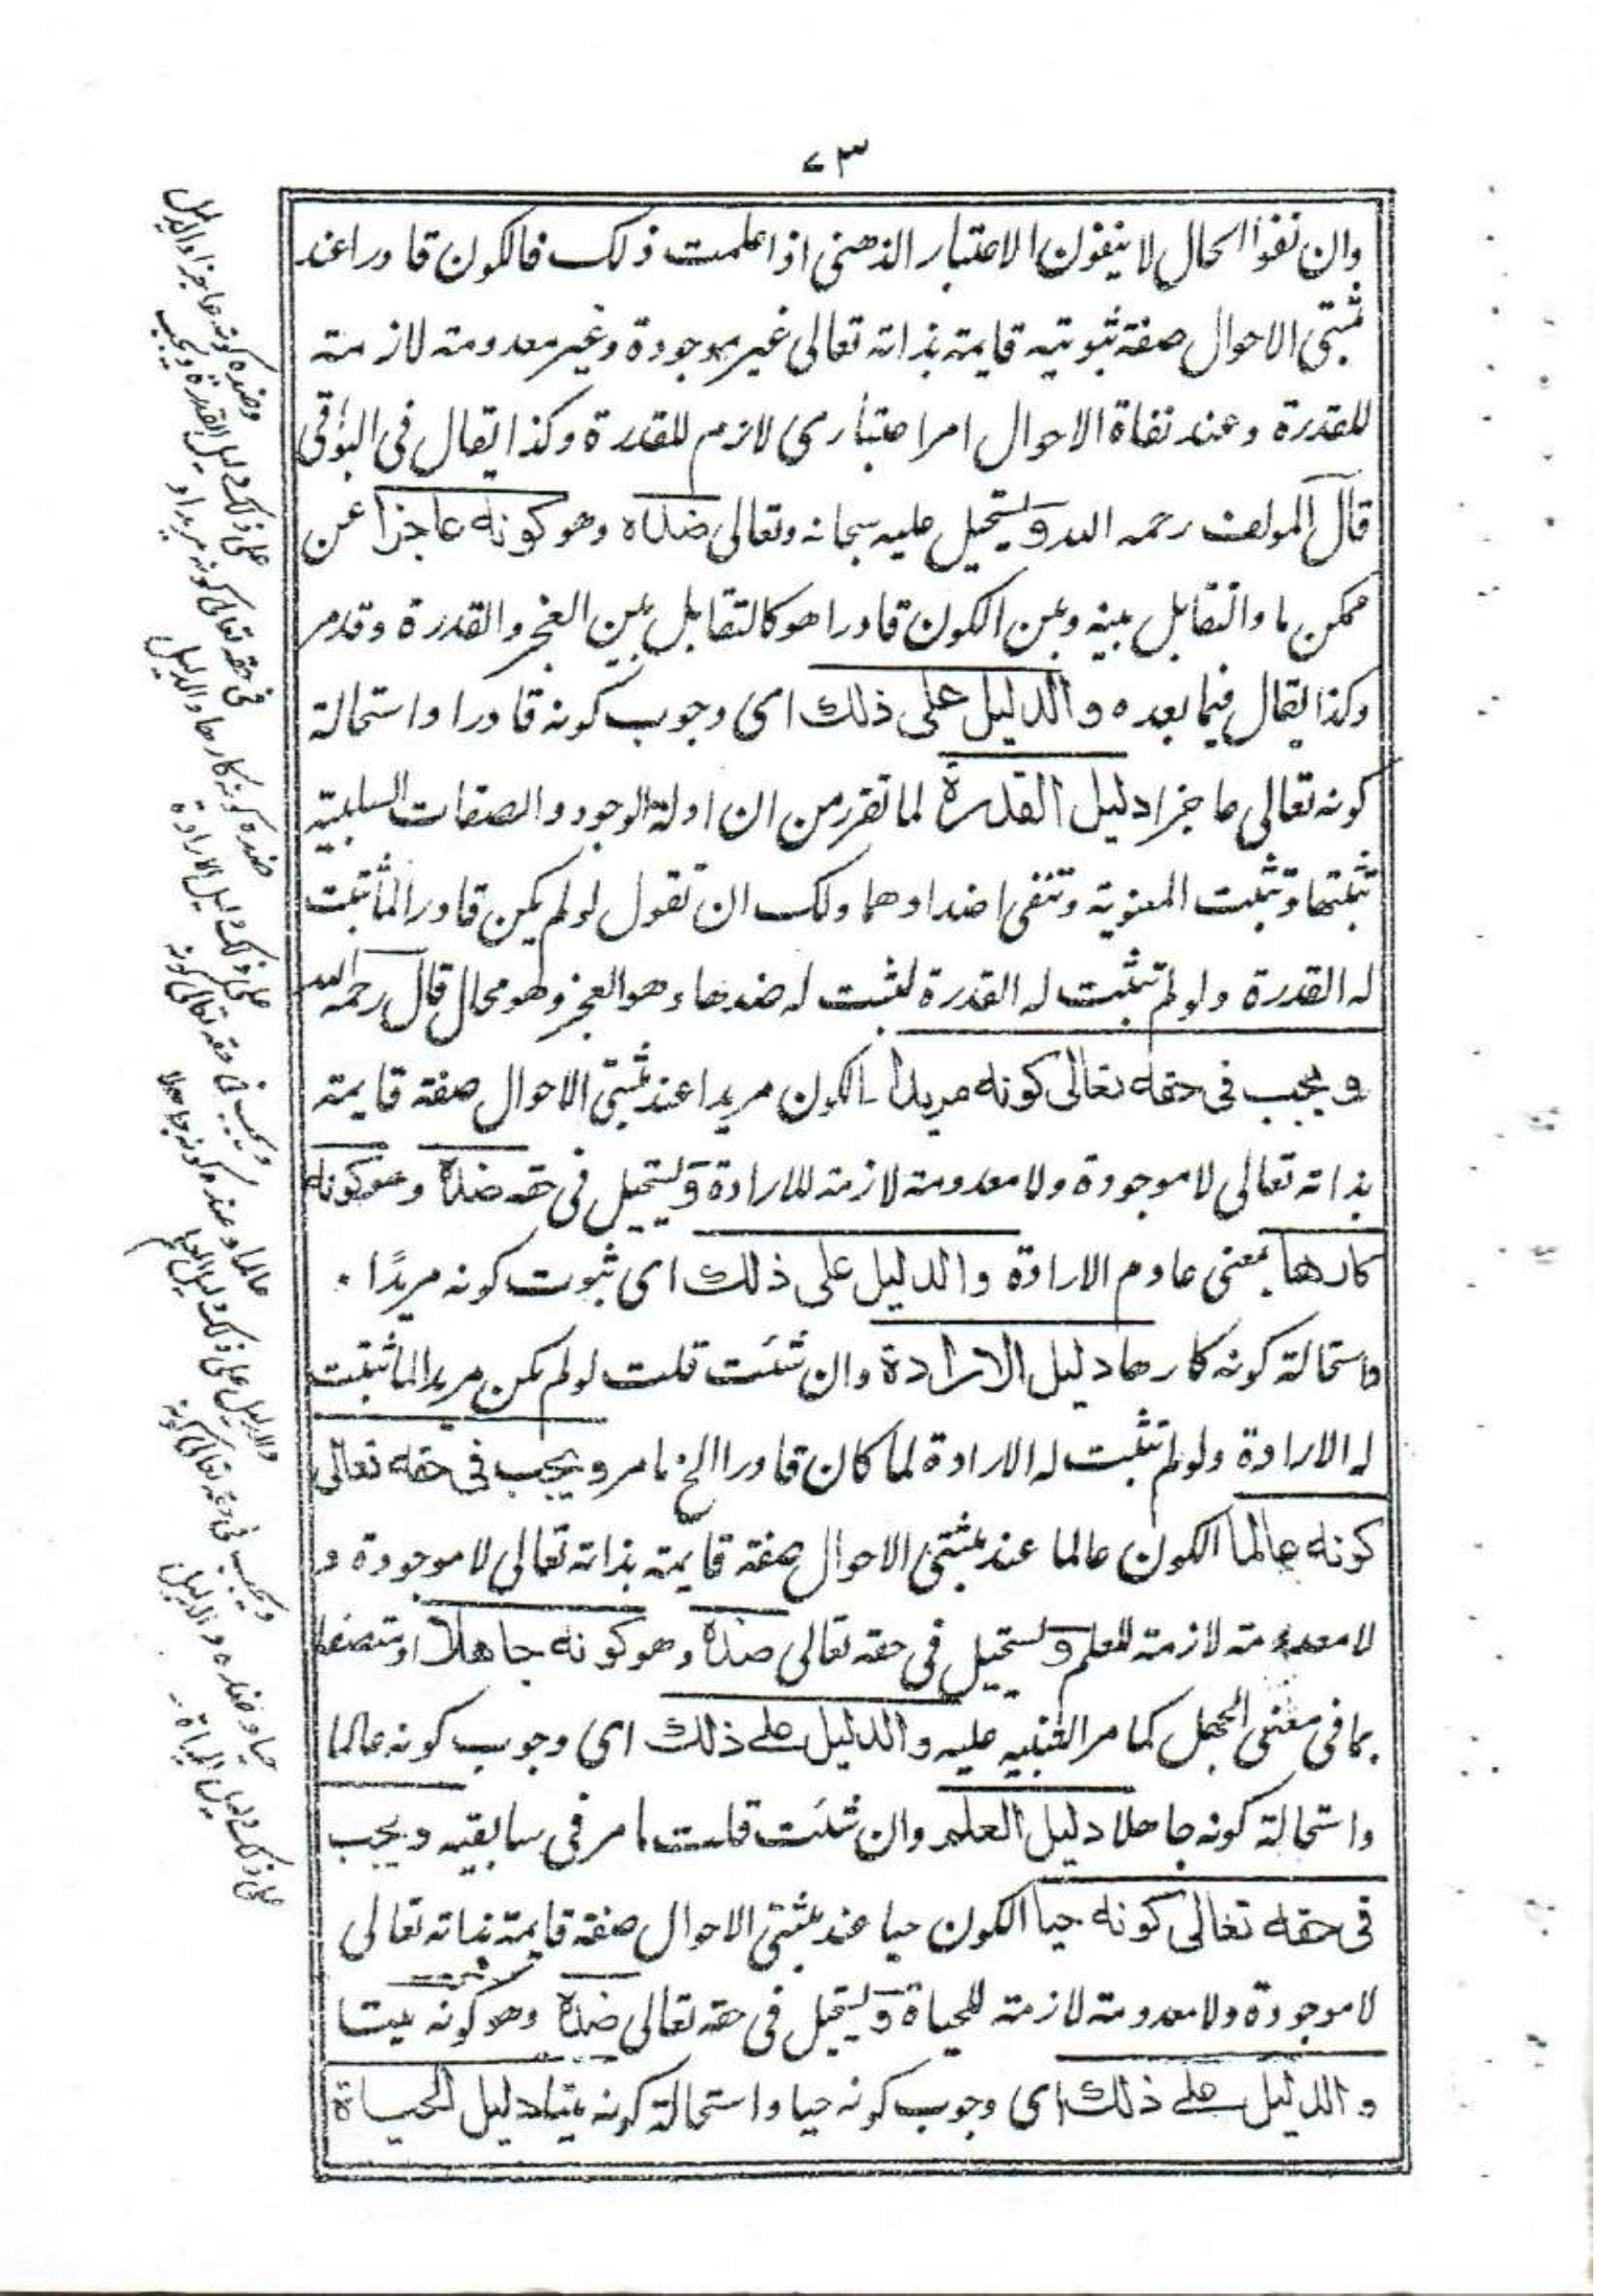 ٧٣
وان نفوا الحال لا ينفون الاعتبار الذهنى اذا علمت ذلك فالكون قادرا عند
مثبتى الاحوال صفة ثبوتية قايمة بذاته تعالى غير موجودة وغير معدومة لازمة
للقدرة وعند نفاة الاحوال امر اعتبارى لازم للقدرة وكذا يقال فى البواقى
قال المولف رحمه الله ويستحيل عليه سبحانه وتعالى ضده وهو كونه عاجزا عن
ممكن ما والتقابل بينه وبين الكون قادرا هو كالتقابل بين العجز والقدرة وقد مر
وكذا يقال فيما بعده والدليل على ذلك اى وجوب كونه قادرا واستحالة
كونه تعالى عاجزا دليل القدرة لما تقرر من ان ادلة الوجود والصفات السلبية
تثبتها وتثبت المعنوية وتنفى اضدادهما ولك ان تقول لو لم يكن قادرا لما ثبتت
له القدرة ولو لم تثبت له القدرة لثبت له ضدها وهو العجز وهو محال قال رحمه الله
ويجب فى حقه تعالى كونه مريدا الكون مريدا عند مثبتى الاحوال صفة قايمة
بذاته تعالى لا موجودة ولا معدومة لازمة للارادة ويستحيل فى حقه ضده وهو كونه
كارها بمعنى عادم الارادة والدليل على ذلك اى ثبوت كونه مريدًا
واستحالة كونه كارها دليل الارادة وان شئت قلت لو لم يكن مريدا لما ثبتت
له الارادة ولو لم تثبت له الارادة لما كان قادرا الخ ما مر ويجب فى حقه تعالى
كونه عالما الكون عالما عند مثبتى الاحوال صفة قايمة بذاته تعالى لا موجودة و
لا معدومة لازمة للعلم ويستحيل فى حقه تعالى ضده وهو كونه جاهلا او متصفا
بما فى معنى الجهل كما مر التنبيه عليه والدليل على ذلك اى وجوب كونه عالما
واستحالة كونه جاهلا دليل العلم وان شئت قلت ما مر فى سابقيه ويجب
فى حقه تعالى كونه حيا الكون حيا عند مثبتى الاحوال صفة قايمة بذاته تعالى
لا موجودة ولا معدومة لازمة للحياة ويستحيل فى حقه تعالى ضده وهو كونه ميتا
والدليل على ذلك اى وجوب كونه حيا واستحالة كونه ميتا دليل الحياة
وضده كونه عاجزا والدليل
على ذلك دليل القدرة ويجب
فى حقه تعالى كونه مريدا و
ضده كونه كارها والدليل
على ذلك دليل الارادة
ويجب فى حقه تعالى كونه
عالما وضده كونه جاهلا
والدليل على ذلك دليل العلم
ويجب فى حقه تعالى كونه
حيا وضده والدليل
على ذلك دليل الحياة